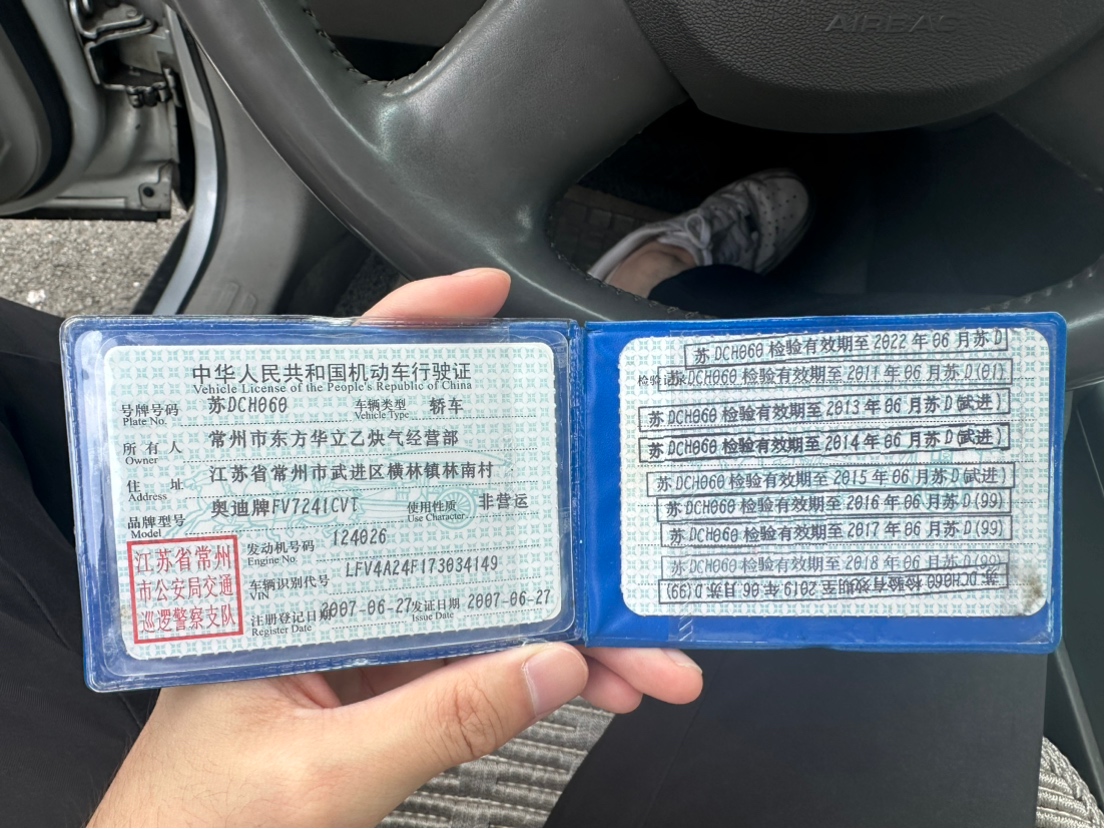 AIRBAG
中华人民共和国机动车行驶证
Vehicle License of the People's Republic of China
号牌号码 苏DCH060 车辆类型 轿车
Plate No. Vehicle Type
所有人 常州市东方华立乙炔气经营部
Owner
住址 江苏省常州市武进区横林镇林南村
Address
品牌型号 奥迪牌FV7241CVT 使用性质 非营运
Model Use Character
江苏省常州
市公安局交通
巡逻警察支队
发动机号码 124026
Engine No.
车辆识别代号 LFV4A24F173034149
VIN
注册登记日期 2007-06-27 发证日期 2007-06-27
Register Date Issue Date
苏DCH060 检验有效期至 2022 年 06 月苏D
检验记录
苏DCH060 检验有效期至 2011 年 06 月苏D(01)
苏DCH060 检验有效期至 2013 年 06 月苏D(武进)
苏DCH060 检验有效期至 2014 年 06 月苏D(武进)
苏DCH060 检验有效期至 2015 年 06 月苏D(武进)
苏DCH060 检验有效期至 2016 年 06 月苏D(99)
苏DCH060 检验有效期至 2017 年 06 月苏D(99)
苏DCH060 检验有效期至 2018 年 06 月苏D(99)
苏DCH060 检验有效期至 2019 年 06 月苏D(99)